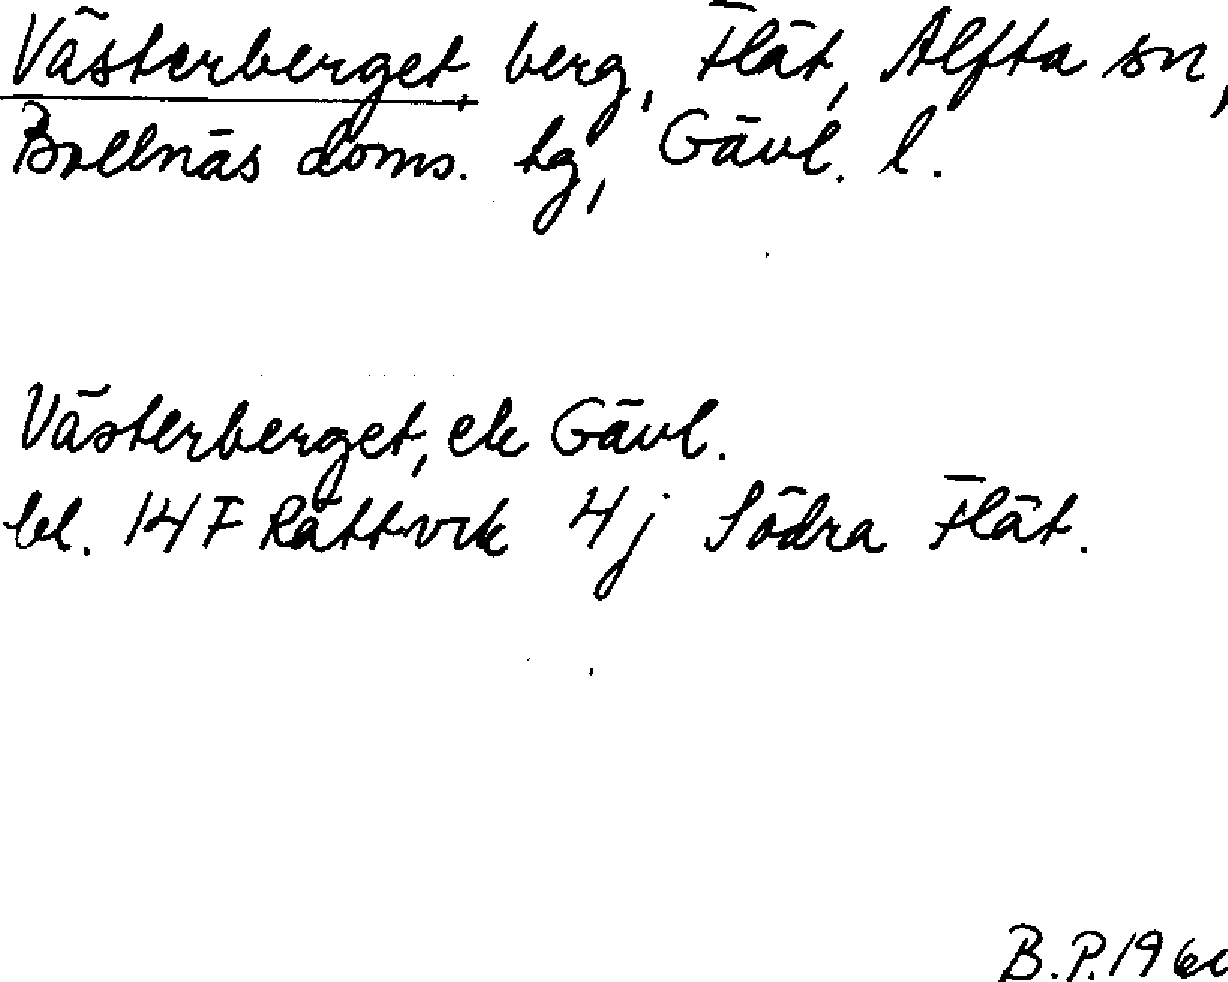 Västerberget, berg, Flät, Alfta sn,
Bollnäs doms. tg, Gävl. l.
Västerberget, ek Gävl.
bl. 14 F Rättvik 4j Södra Flät.
B.P.